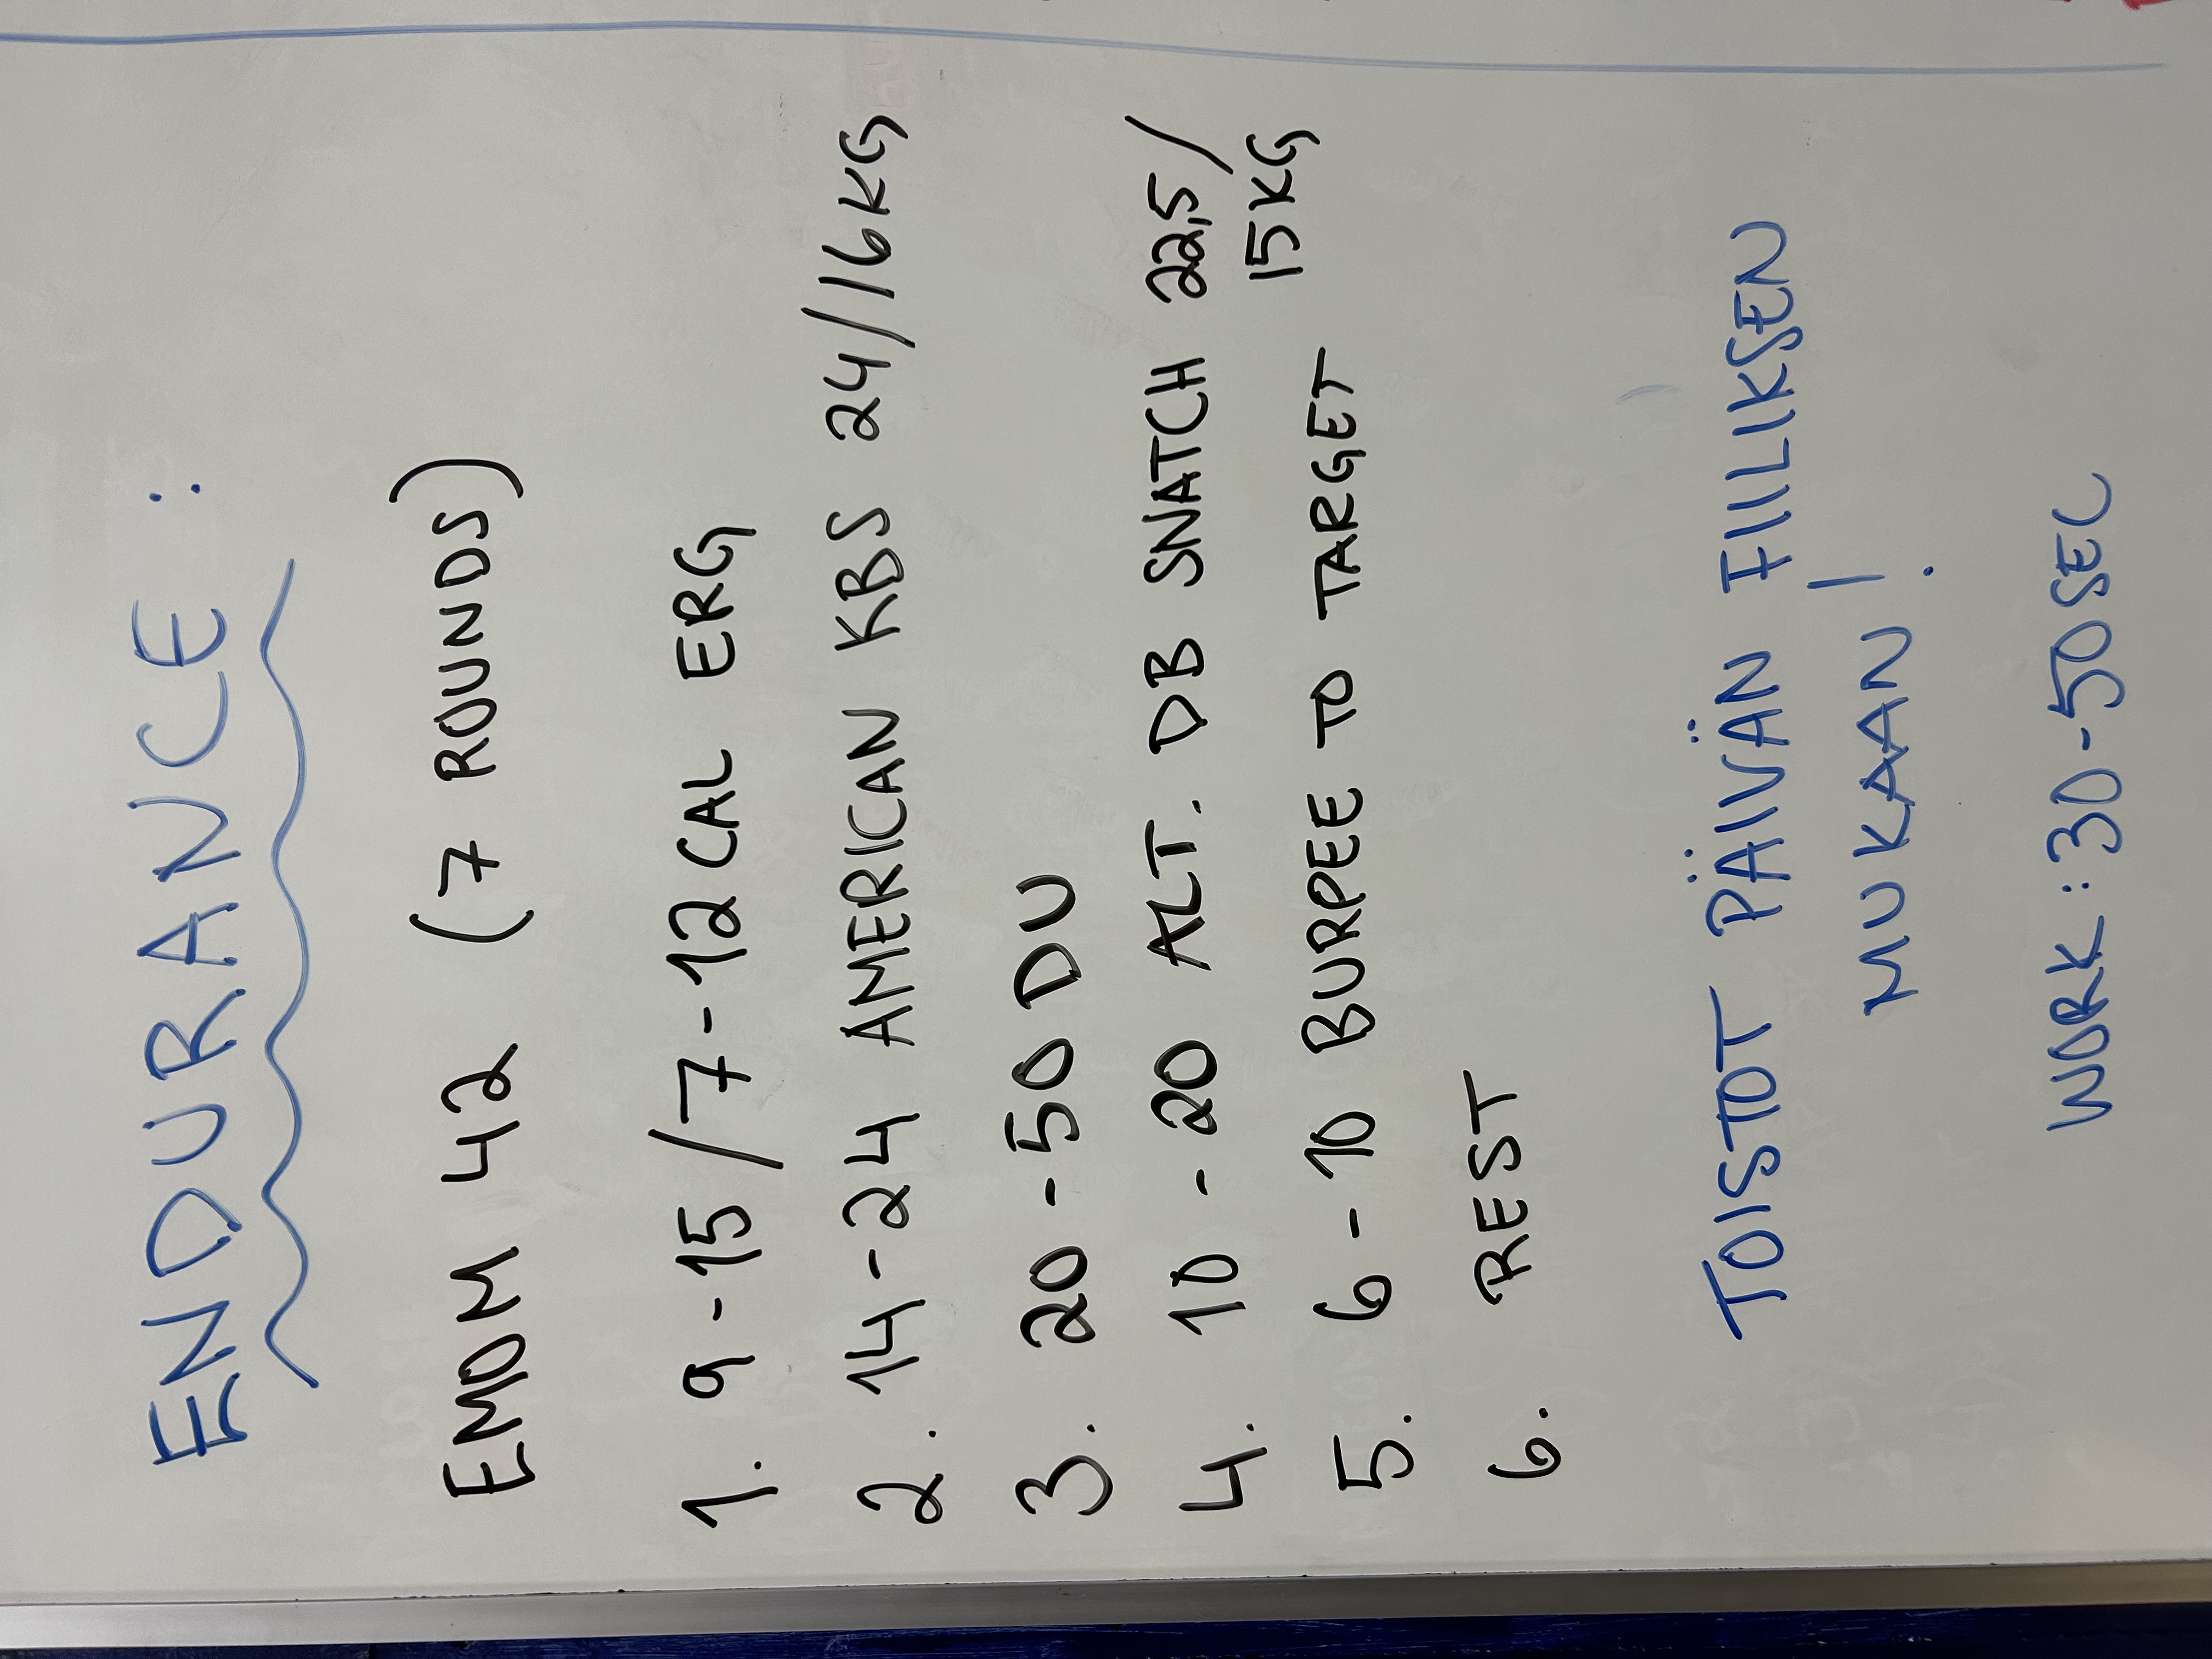 ENDURANCE:
EMOM 42 (7 ROUNDS)
1. 9-15/7-12 CAL ERG
2. 14-24 AMERICAN KBS 24/16KG
3. 20-50 DU
4. 10-20 ALT. DB SNATCH 22,5/
15KG
5. 6-10 BURPEE TO TARGET
6. REST
TOISTOT PÄIVÄN FIILIKSEN
MUKAAN!
WORK: 30-50SEC